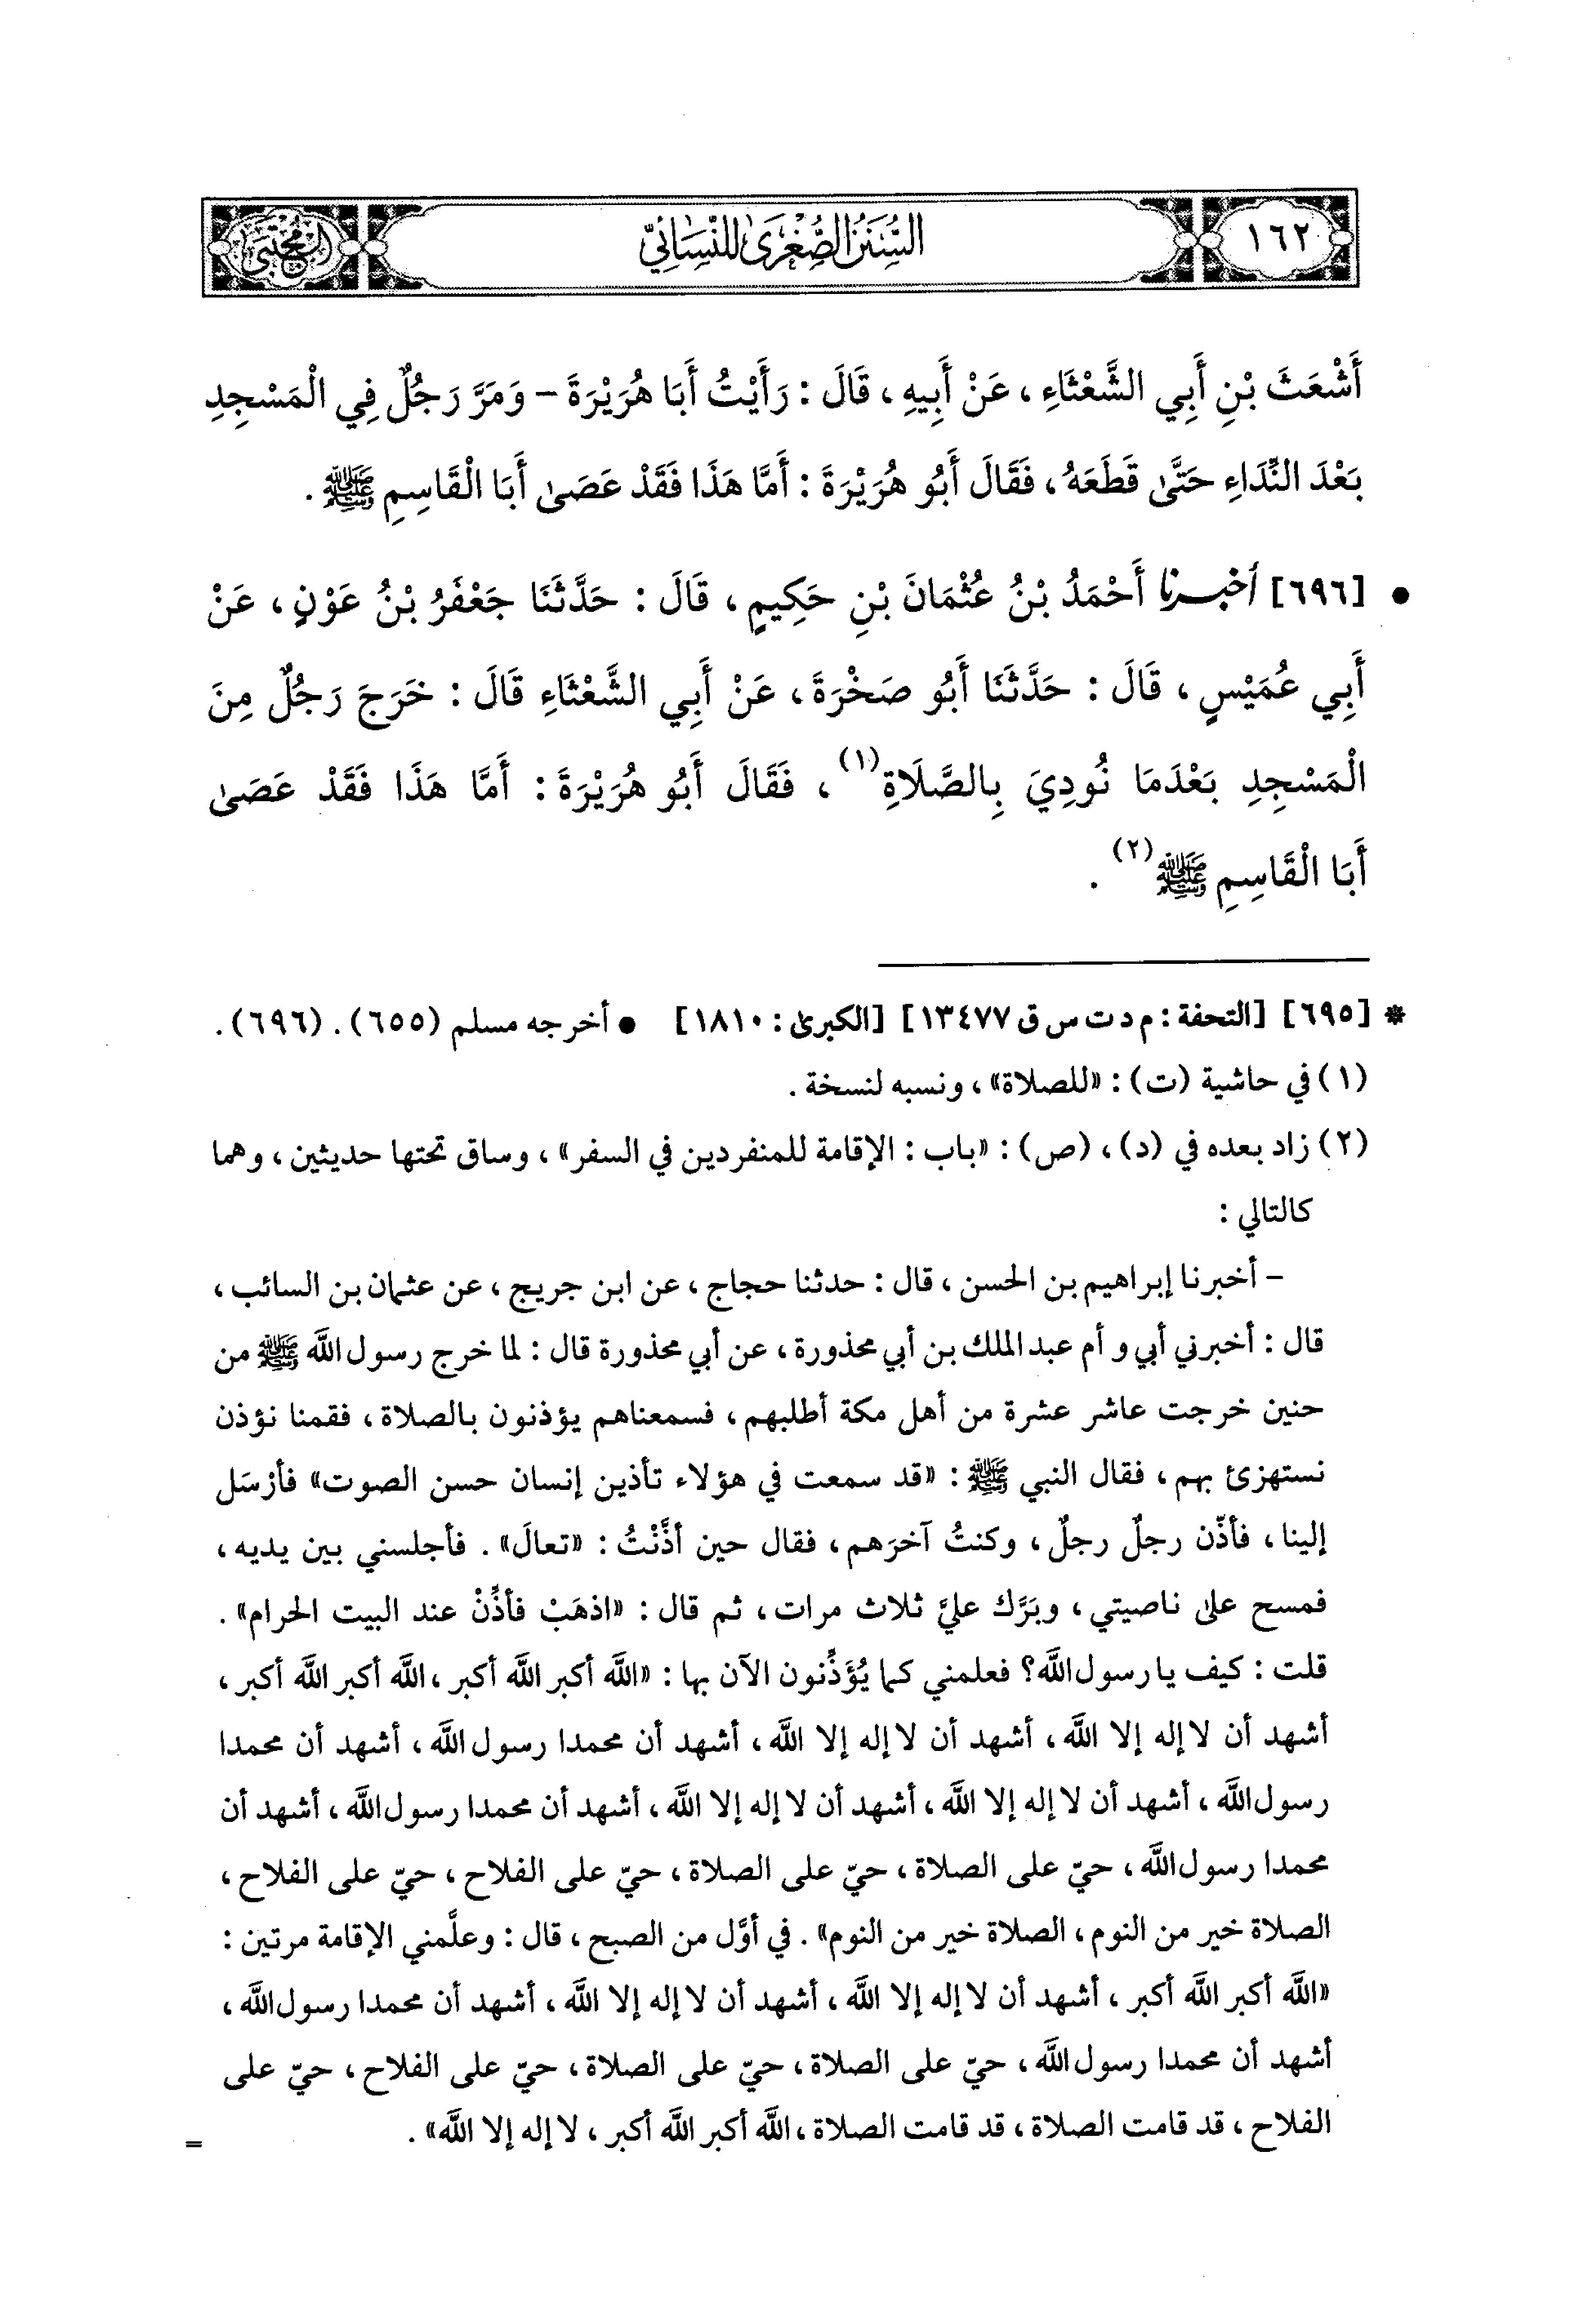 ١٦٢
السُّنَنُ الصُّغْرَىٰ لِلنَّسَائِيِّ
المجتبى
أَشْعَثَ بْنِ أَبِي الشَّعْثَاءِ، عَنْ أَبِيهِ، قَالَ: رَأَيْتُ أَبَا هُرَيْرَةَ - وَمَرَّ رَجُلٌ فِي الْمَسْجِدِ
بَعْدَ النِّدَاءِ حَتَّىٰ قَطَعَهُ، فَقَالَ أَبُو هُرَيْرَةَ: أَمَّا هَذَا فَقَدْ عَصَىٰ أَبَا الْقَاسِمِ ﷺ.
• [٦٩٦] أخبرنا أَحْمَدُ بْنُ عُثْمَانَ بْنِ حَكِيمٍ، قَالَ: حَدَّثَنَا جَعْفَرُ بْنُ عَوْنٍ، عَنْ
أَبِي عُمَيْسٍ، قَالَ: حَدَّثَنَا أَبُو صَخْرَةَ، عَنْ أَبِي الشَّعْثَاءِ قَالَ: خَرَجَ رَجُلٌ مِنَ
الْمَسْجِدِ بَعْدَمَا نُودِيَ بِالصَّلَاةِ(١)، فَقَالَ أَبُو هُرَيْرَةَ: أَمَّا هَذَا فَقَدْ عَصَىٰ
أَبَا الْقَاسِمِ ﷺ(٢).
* [٦٩٥] [التحفة: م د ت س ق ١٣٤٧٧] [الكبرىٰ: ١٨١٠] • أخرجه مسلم (٦٥٥). (٦٩٦).
(١) في حاشية (ت): «للصلاة»، ونسبه لنسخة.
(٢) زاد بعده في (د)، (ص): «باب: الإقامة للمنفردين في السفر»، وساق تحتها حديثين، وهما
كالتالي:
- أخبرنا إبراهيم بن الحسن، قال: حدثنا حجاج، عن ابن جريج، عن عثمان بن السائب،
قال: أخبرني أبي و أم عبد الملك بن أبي محذورة، عن أبي محذورة قال: لما خرج رسول اللَّه ﷺ من
حنين خرجت عاشر عشرة من أهل مكة أطلبهم، فسمعناهم يؤذنون بالصلاة، فقمنا نؤذن
نستهزئ بهم، فقال النبي ﷺ: «قد سمعت في هؤلاء تأذين إنسان حسن الصوت» فأرْسَل
إلينا، فأذّن رجلٌ رجلٌ، وكنتُ آخرَهم، فقال حين أذَّنْتُ: «تعالَ». فأجلسني بين يديه،
فمسح علىٰ ناصيتي، وبَرَّك عليَّ ثلاث مرات، ثم قال: «اذهَبْ فأذِّنْ عند البيت الحرام».
قلت: كيف يا رسول اللَّه؟ فعلمني كما يُؤَذِّنون الآن بها: «اللَّه أكبر اللَّه أكبر، اللَّه أكبر اللَّه أكبر،
أشهد أن لا إله إلا اللَّه، أشهد أن لا إله إلا اللَّه، أشهد أن محمدا رسول اللَّه، أشهد أن محمدا
رسول اللَّه، أشهد أن لا إله إلا اللَّه، أشهد أن لا إله إلا اللَّه، أشهد أن محمدا رسول اللَّه، أشهد أن
محمدا رسول اللَّه، حيّ على الصلاة، حيّ على الصلاة، حيّ على الفلاح، حيّ على الفلاح،
الصلاة خير من النوم، الصلاة خير من النوم». في أوَّل من الصبح، قال: وعلَّمني الإقامة مرتين:
«اللَّه أكبر اللَّه أكبر، أشهد أن لا إله إلا اللَّه، أشهد أن لا إله إلا اللَّه، أشهد أن محمدا رسول اللَّه،
أشهد أن محمدا رسول اللَّه، حيّ على الصلاة، حيّ على الصلاة، حيّ على الفلاح، حيّ على
الفلاح، قد قامت الصلاة، قد قامت الصلاة، اللَّه أكبر اللَّه أكبر، لا إله إلا اللَّه».
=